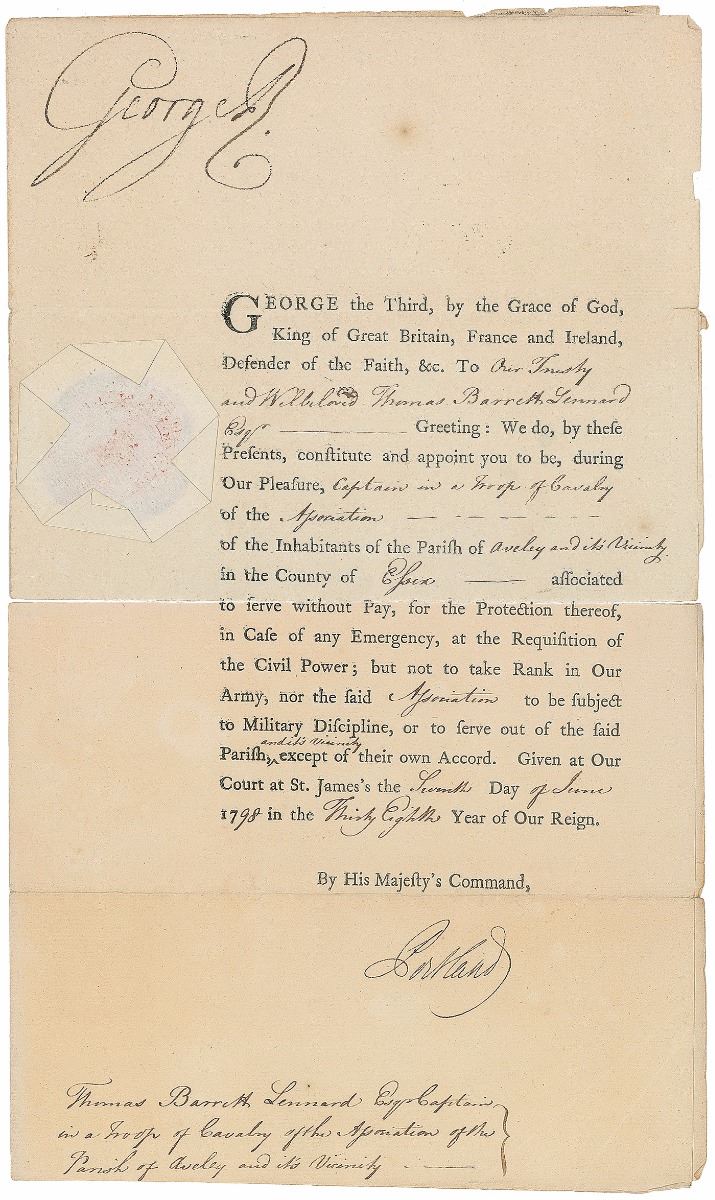 George R.
GEORGE the Third, by the Grace of God,
King of Great Britain, France and Ireland,
Defender of the Faith, &c. To Our Trusty
and Wellbeloved Thomas Barrett Lennard
Esqr. ———— Greeting: We do, by theſe
Preſents, conſtitute and appoint you to be, during
Our Pleaſure, Captain in a Troop of Cavalry
of the Aſsociation — — — —
of the Inhabitants of the Pariſh of Aveley and it's Vicinity
in the County of Eſsex —— aſſociated
to ſerve without Pay, for the Protection thereof,
in Caſe of any Emergency, at the Requiſition of
the Civil Power; but not to take Rank in Our
Army, nor the ſaid Aſsociation to be ſubject
to Military Diſcipline, or to ſerve out of the ſaid
and it's Vicinity
Pariſh, ‸ except of their own Accord. Given at Our
Court at St. James's the Seventh Day of June
1798 in the Thirty Eighth Year of Our Reign.
By His Majeſty's Command,
Portland
Thomas Barrett Lennard Esqr. Captain
in a Troop of Cavalry of the Aſsociation of the
Parish of Aveley and it's Vicinity ——